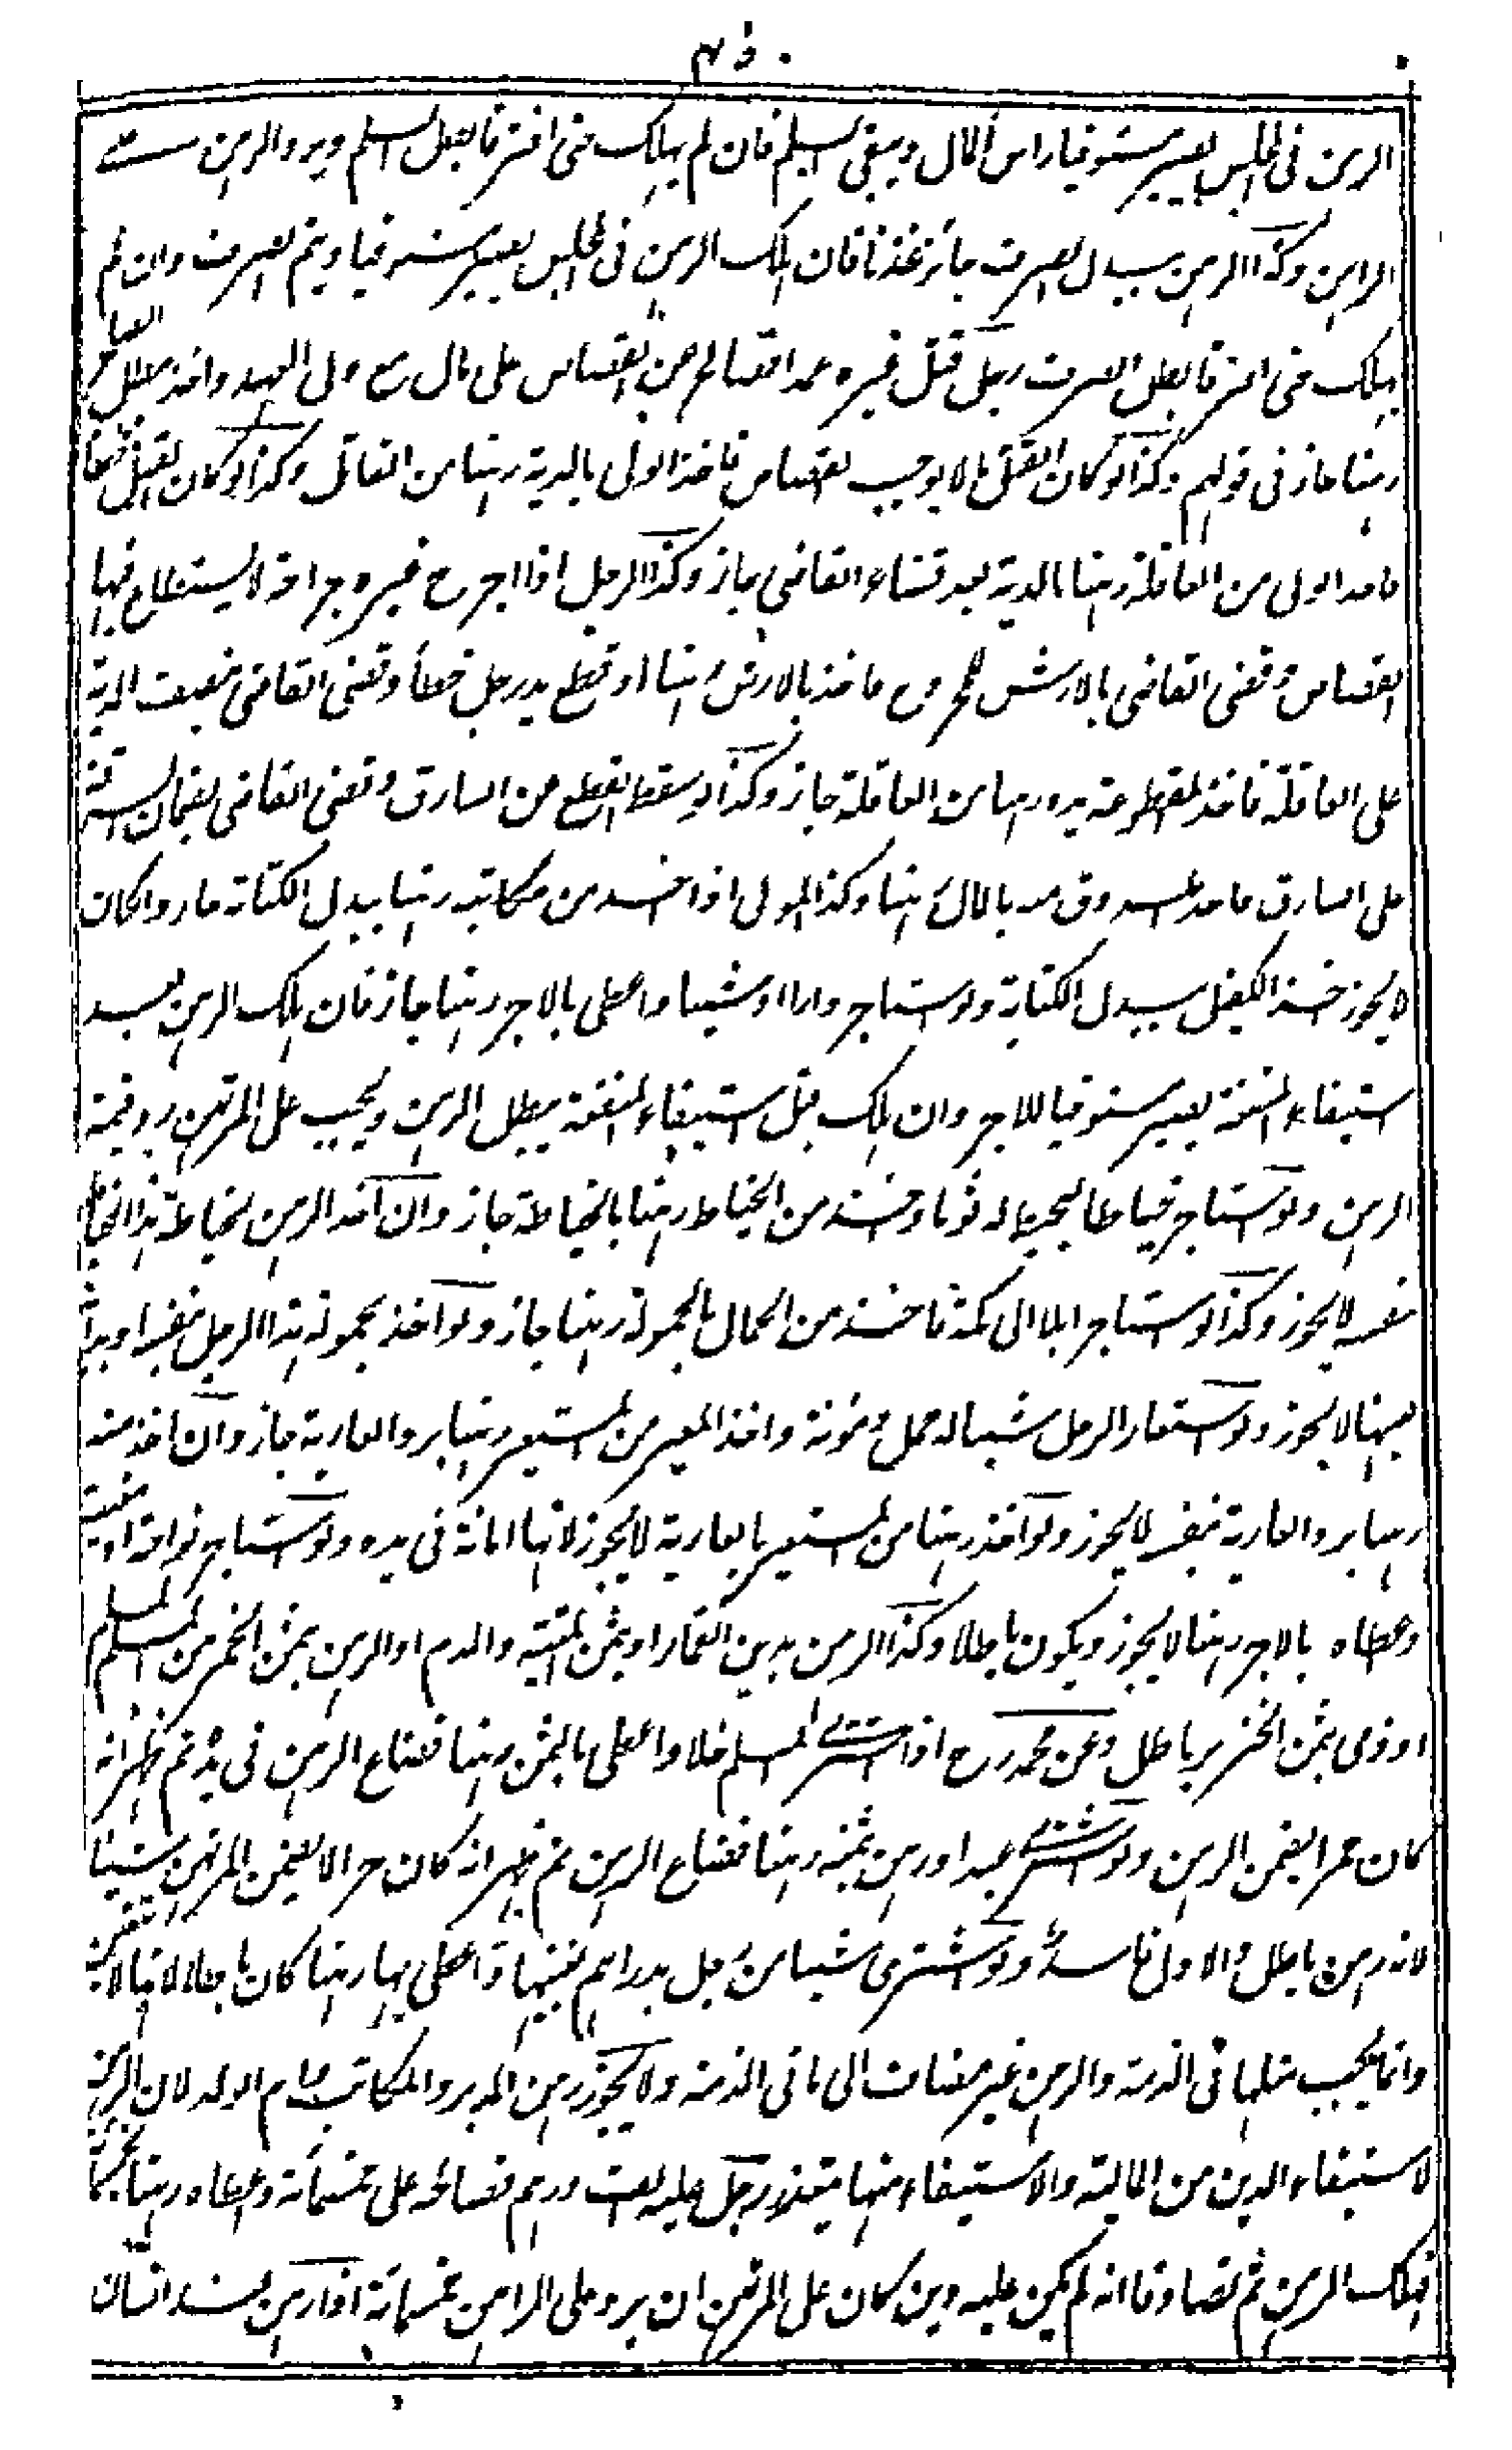 الرهن فى المجلس يصير مستوفيا راس المال ويبقى السلم فان لم يهلك حتى افترقا بطل السلم ويرد الرهن على
الراهن وكذا الرهن ببدل الصرف جائز عندنا فان هلك الرهن فى المجلس يصير مستوفيا ويتم الصرف وان لم
يهلك حتى افترقا بطل الصرف رجل قتل غيره عمدا فصالح عن القصاص على مال مع ولى العهد واخذ بالمال
رهنا جاز فى قولهم وكذا لو كان القتل لا يوجب القصاص فاخذ الولى بالدية رهنا من القاتل وكذا لو كان القتل خطأ
فاخذ الولى من العاقلة رهنا بالدية بعد قضاء القاضى جاز وكذا الرجل اذا جرح غيره جراحة لا يستطاع فيها
القصاص وقضى القاضى بالارش للمجروح فاخذ بالارش رهنا او قطع يد رجل خطأ وقضى القاضى بنصف الدية
على العاقلة فاخذ المقطوعة يده رهنا من العاقلة جاز وكذا لو سقط القطع عن السارق وقضى القاضى بضمان السرقة
على السارق فاخذ المسروق منه بالمال رهنا وكذا المولى اذا اخذ من مكاتبه رهنا ببدل الكتابة جاز وان كان
لا يجوز اخذ الكفيل ببدل الكتابة ولو استاجر دارا او شيئا واعطى بالاجر رهنا جاز فان هلك الرهن بعد
استيفاء المنفعة يصير مستوفيا للاجر وان هلك قبل استيفاء المنفعة يبطل الرهن ويجب على المرتهن رد قيمة
الرهن ولو استاجر خياطا ليخيط له ثوبا واخذ من الخياط رهنا بالخياطة جاز وان اخذ الرهن بخياطة هذا الخياط
بنفسه لا يجوز وكذا لو استاجر ابلا الى مكة فاخذ من الحمال بالحمولة رهنا جاز ولو اخذ بحمولة هذا الرجل بنفسه او بدابة
بعينها لا يجوز ولو استعار الرجل شيئا له حمل ومؤنة واخذ المعير من المستعير رهنا برد العارية جاز وان اخذ منه
رهنا برد العارية بنفسه لا يجوز ولو اخذ رهنا من المستعير بالعارية لا يجوز لانها امانة فى يده ولو استاجر نواحة او مغنية
واعطاه بالاجر رهنا لا يجوز ويكون باطلا وكذا الرهن بدين القمار او بثمن الميتة والدم او الرهن بثمن الخمر من المسلم لمسلم
او ذمى بثمن الخنزير باطل وعن محمد رح اذا اشترى المسلم خلا واعطى بالثمن رهنا فضاع الرهن فى يده ثم ظهر انه
كان خمرا يضمن الرهن ولو اشترى عبدا ورهن بثمنه رهنا فضاع الرهن ثم ظهر انه كان حرا لا يضمن المرتهن شيئا
لانه رهن باطل والاول فاسد ولو اشترى شيئا من رجل بدراهم بعينها واعطى بها رهنا كان باطلا لانها لا تتعين
وانما يجب مثلها فى الذمة والرهن غير مضاف الى ما فى الذمة ولا يجوز رهن المدبر والمكاتب وام الولد لان الرهن
لاستيفاء الدين من المالية والاستيفاء منها متعذر رجل عليه الف درهم فصالحه على خمسمائة واعطاه رهنا بخمسمائة
فهلك الرهن ثم تصادقا انه لم يكن عليه دين كان على المرتهن ان يرد على الراهن خمسمائة اذا رهن عند انسان